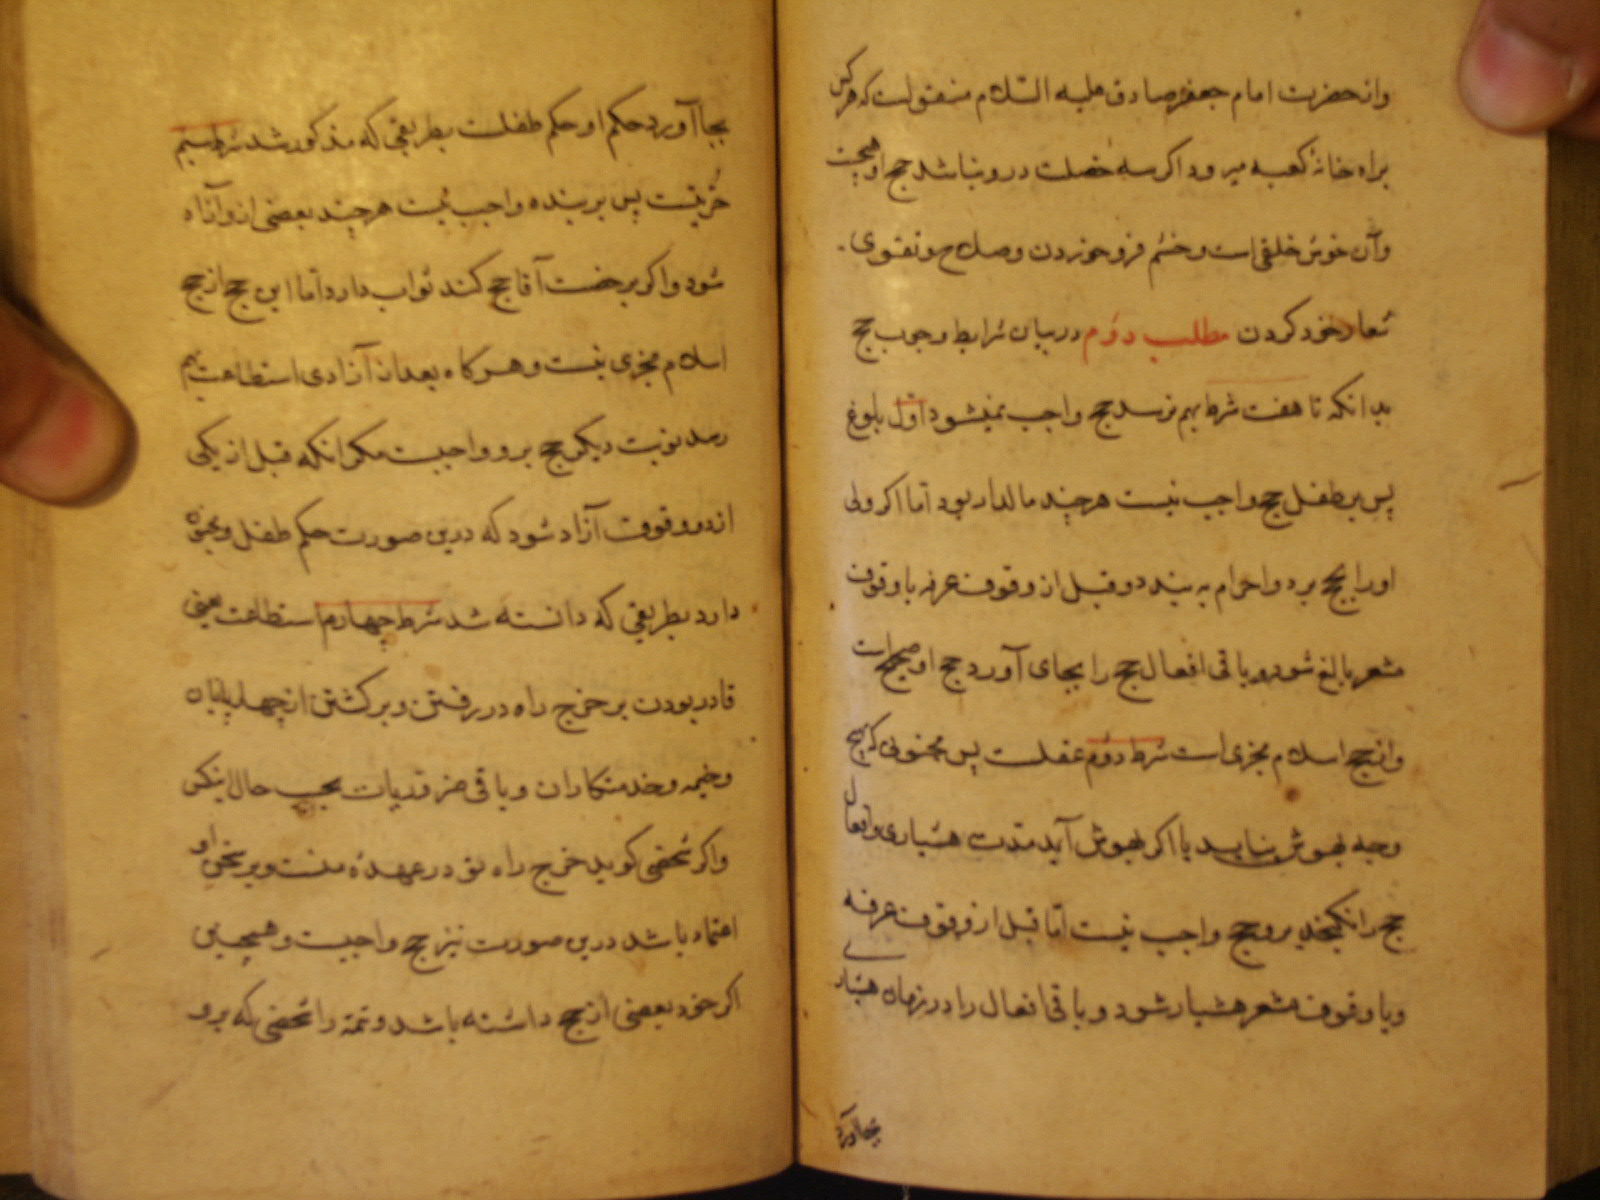 واز حضرت امام جعفر صادق علیه السّلام منقولست که هرکس
براه خانهٔ کعبه میرود اگر سه خصلت در و نباشد حج او هیچست
وآن خوش خلقی است و خشم فرو خوردن و صلاح و تقوی
شعار خود کردن مطلب دوّم در بیان شرایط وجوب حج
بدانکه تا هفت شرط بهم نرسد حج واجب نمیشود اوّل بلوغ
پس بر طفل حج واجب نیست هرچند مالدار بود امّا اگر ولی
او را بحج برد و احرام به بندد و قبل از وقوف عرفه یا وقوف
مشعر بالغ شود و باقی افعال حج را بجای آورد حج او صحیح است
و از حج اسلام مجزی است شرط دوّم عقلست پس مجنونی که بهیچ
وجه بهوش نیاید یا اگر بهوش آید مدت هشیاری وافعال
حج را نگنجد برو حج واجب نیست امّا قبل از وقوف عرفه
و یا وقوف مشعر هشیار شود و باقی افعال را در زمان هشیاری
بجا آورد
بجا آورد حکم او حکم طفلست بطریقی که مذکور شد شرط سیم
حُرّیتست پس بر بنده واجب نیست هرچند بعضی ازو آزاد
شود و اگر برخصت آقا حج کند ثواب دارد امّا این حج از حج
اسلام مجزی نیست و هرگاه بعد از آزادی استطاعت بهم
رسد نوبت دیگر حج برو واجبست مگر انکه قبل از یکی
از دو وقوف آزاد شود که درین صورت حکم طفل و مجنون
دارد بطریقی که دانسته شد شرط چهارم استطاعت یعنی
قادر بودن بر خرج راه در رفتن و برگشتن از چهارپایان
وخیمه و خدمتکاران و باقی ضروریات بحسب حال اینکس
واگر شخصی گوید خرج راه تو در عهدهٔ منست و بر سخن او
اعتماد باشد درین صورت نیز حج واجبست و همچنین
اگر خود بعضی از حج داشته باشد و تتمّه را شخصی که برو